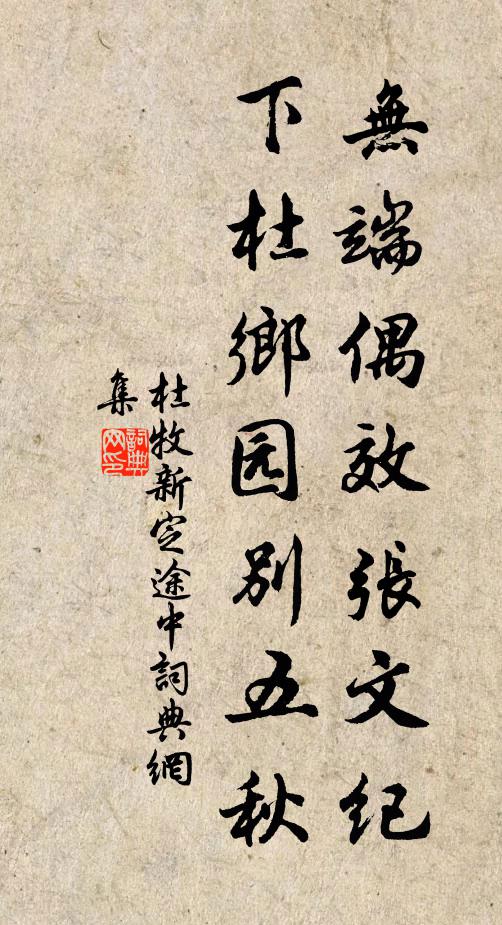 無端偶效張文紀
下杜鄉园別五秋
杜牧新定途中詞典網
集
詞典网印